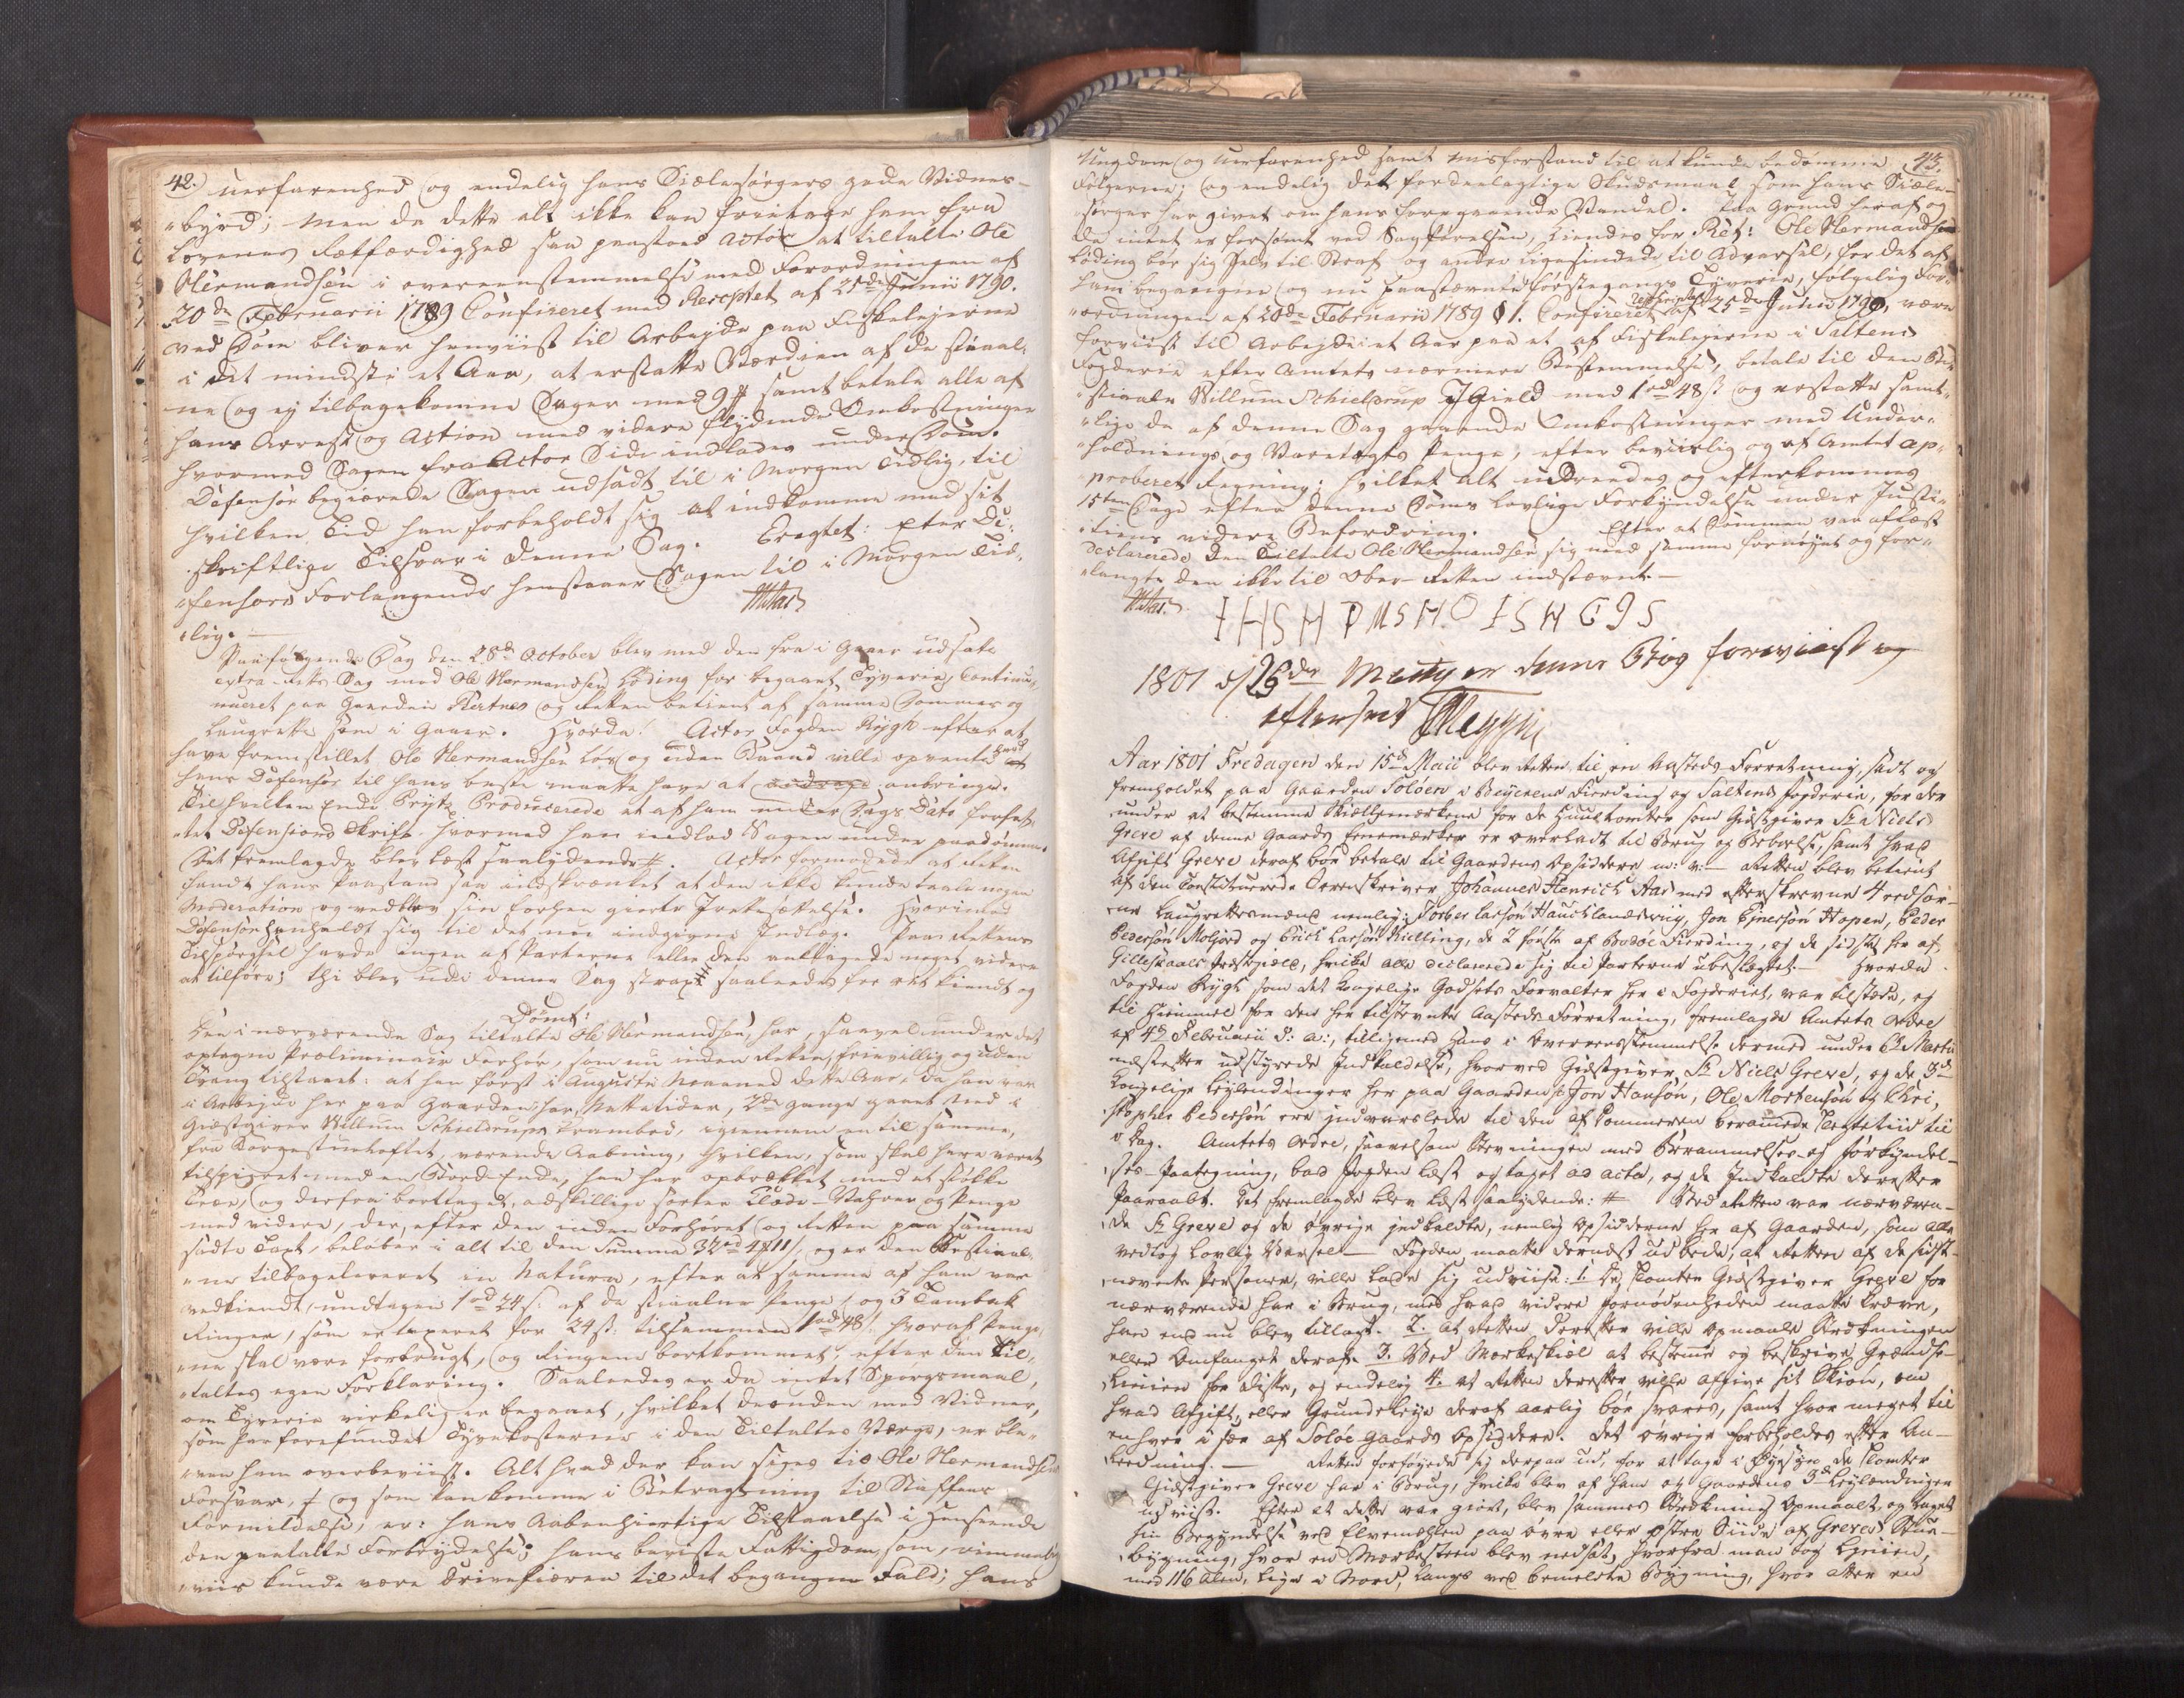 42.) uerfarenhed og endelig hans Siælesørgers gode Vidnes-
„byrd; men da dette alt ikke kan fritage ham fra
Lovenes Retfærdighed saa paastoed Actor at tiltalte Ole
Hermandsen i overeensstemmelse med Forordningen af
20de Februarii 1789 Confireret med Rescriptet af 25de Junii 1790.
ved Dom bliver henviist til Arbejde paa Fiskelejerne
i det mindste et Aar, at erstatte Værdien af de stiaal-
ne og ej tilbagekomne Sager med 9 # samt betale alle af
hans Arrest og Action med videre flydende Omkostninger
hvormed Sagen fra Actors Side indlades under Dom.
Defensor begiærede Sagen udsadt til i Morgen tidlig, til
hvilken Tid han forbeholdt sig at indkomme med sit
skriftlige Tilsvar i denne Sag. Eragtet: efter De-
„fensors Forlangende henstaaer Sagen til i Morgen tid-
„lig.
MAas
Paafølgende Dag den 28de October blev med den fra i Gaar udsatte
extra Rets Sag mod Ole Hermandsen Løding for begaaet Tyverie, Conti-
nueret paa Gaarden Rertnes og Retten betient af samme Dommer og
Laugrette som i Gaar. Hvorda! Actor Fogden Rÿgh efter at
have fremstillet Ole Hermandsen løs og uden Baand ville opvente hvad
hans Defensor til hans beste maatte have at andrage anbringe.
Til hvilken Ende Prÿtz Producerede et af ham under Dags Dato forfat-
„tet Defensions Skrift hvormed han indlod Sagen under paadømme.
Det fremlagde blev læst saalydende #. Actor formodede at Retten
fandt hans Paastand saa indskrænket at den ikke kunde taale nogen
Moderation og vedblev sin forhen giorte Irettesættelse. Hvorimod
Defensor henholdt sig til det nu indgivne Indlæg. Paa Rettens
Tilspørgsel havde ingen af Parterne eller den anklagede noget videre
at tilføre; thi blev udi denne Sag strax saaledes for ret kiendt og
Dømt!
Den i nærværende Sag tiltalte Ole Hermandsen, har, saavel under det
optagne Præliminair Forhør, som nu inden Retten, frievillig og uden
Tvang tilstaaet: at han først i Augusti Maaned dette Aar, da han var
i Arbejde her paa Gaarden, har Nattetider, 2de gange gaaet ned i
Giæstgiver Willum Schieldrups Krambod, igiennem en til samme,
fra Borgestueloftet, værende Aabning, hvilken, som skal have været
tilspigret med en Bord-Ende, han har opbrækket med et støkke
Træe, og derfra borttaget adskillige sorter Klæde-Vahrer og Penge
med videre, der, efter den inden Forhøret og Retten paa samme
sadte Taxt, beløber i alt til den Summa 32rd 4# 11s, og er den Bestiaal-
„ne tilbageleveret in Natura, efter at samme af ham var
vedkiendt, undtagen 1rd 24 s: af de stiaalne Penge og 3 Tombak
Ringer, som er taxeret for 24 s: tilsammen 1rd 48 s: hvoraf Penge-
„ne skal være forbrugt, og Ringene bortkommet, efter den Til-
„taltes egen Forklaring. Saaledes er da intet Spørgsmaal,
om Tyverie virkelig er begaaet, hvilket desuden med Vidner,
som har forefundet Tyvekosterne i den Tiltaltes Værge, er ble-
„ven ham overbeviist. Alt hvad der kan siges til Ole Hermandsens
Forsvar, og som kan komme i Betragtning til Straffens
Formildelse, er: hans Aabenhiertige Tilstaaelse i Henseende
den paatalte Forbrÿdelse; hans beviste Fattigdom, som, rimmelig-
„viis kunde være Drivefiæren til det begangne Fald; hans
43.
Ungdom og uerfarenhed samt misforstand til at kunde bedømme
Følgerne; og endelig det fordeelagtige Skudsmaal som hans Siæle-
„sørger har givet om hans foregaaende Vandel. Paa Grund heraf og
da intet er forsømt ved Sagførelsen, kiendes for Ret! Ole Hermandsen
Løding bør sig selv til Straf og andre ligesindede til Advarsel, for det af
ham begangne og nu paastævnte første gangs Tyverie, følgelig For-
„ordningen af 20de Februarii 1789 § 1. Confireret Rescriptet af 25de Junii 1790, være
henviist til Arbejde i et Aar paa et af Fiskelejerne i Saltens
Fogderie efter Amtets nærmere Bestemmelse, betale til den Be-
„stiaalne Willum Schieldrup I Gield med 1rd 48 s: og erstatte samt-
„lige de af denne Sag gaaende Omkostninger med Under-
„holdnings og Varetægts Penge, efter beviislig og af Amtet ap-
„proberet Regning; hvilket alt udreedes og efterkommes
15ten Dage efter denne Doms lovlige Forkyndelse under Justi-
„tiens videre Befordring. Efter at Dommen var aflæst
declarerede den Tiltalte Ole Hermandsen sig med samme fornøyet og for-
„langte den ikke til Ober-Retten indstævnt.
MAas. IHS H PMS H O ISH CIS
1801 d/26de Maÿ er denne Bog foreviist og
efterseet
Aar 1801 Fredagen den 15de Maii blev Retten til en Aasteds Forretning, sadt og
fremholdet paa Gaarden Soløen i Beÿerens Fierding og Saltens Fogderie, for der
„under at bestemme Skiellemerkene for de Huustomter som Giæstgiver Sr Niels
Greve af denne Gaards Eiemærker er overladt til Brug og Beboelse, samt hvad
Afgift Greve deraf bør betale til Gaardens Opsiddere m: v: — Retten blev betient
af den Constituerede Sorenskriver Johannes Henrich Aas med efterskrevne 4 eedsor-
ne Laugrettesmænd nemlig: Torber Larsøn Hauchlandsviig, Jon Ejnersøn Hopen, Peder
Pedersøn Moljord og Erich Larsøn Kielling, de 2 første af Bodøe Fierding, og de sidste her af
Gilleskaals Præstegield, hvilke alle declarerede sig til Parterne ubeslægtet. — Hvorda
Fogden Rÿgh som det Kongelige Godsets Forvalter her i Fogderiet, var tilstæde, og
til Hiemmel for den her tilstevnte Aasteds Forretning, fremlagde Amtets Ordre
af 4de Februarii d: a:, tilligemed hans i Overeensstemmelse dermed under 6de Martii
næstefter udstyrede Indkaldelse, hvorved Giæstgiver Sr Niels Greve, og de 3de
Kongelige Leÿlendinger her paa Gaarden Jon Hansøn, Ole Mortensøn og Chri-
„stopher Pedersøn ere indvarslede til den af Dommeren beramede Tægtetiid til
i Dag. Amtets Ordre, saavelsom Stevningen med Berammelses- og Forkyndel-
„ses-Paategning, bad Fogden læst og taget ad acta, og de Indkaldte derefter
Paaraabt. Det fremlagde blev læst saalydende: # Ved Retten var nærværen-
„de Sr Greve og de øvrige indkaldte, nemlig Opsidderne her af Gaarden, som alle
vedtog lovlig Varsel. — Fogden maatte dernæst udbede, at Retten af de sidst-
„nævnte Personer, ville lade sig udviise: 1. De Tomter Giæstgiver Greve for
nærværende har i Brug, med hvad videre fornødenheden maatte kræve,
ham end nu blev tillagt. 2. at Retten derefter ville opmaale Strækningen
eller Omfanget deraf. 3. Ved Mærkeskiæl at bestemme og beskrive Grændse-
Linien for disse, og endelig 4. at Retten derefter ville afgive sit Skiøn, om
hvad Afgift, eller Grundeleje deraf aarlig bør svares, samt hvor meget til
enhver i sær af Soløe Gaards Opsiddere. Det øvrige forbeholdes efter An-
ledning. — Retten forføyede sig derpaa ud, for at tage i Øyesyn de Tomter
Giæstgiver Greve har i Brug, hvilke blev af ham og Gaardens 3de Leÿlendinger
udviist. Efter at dette var giort, blev sammes Strækning opmaalt, og taget
sin Begyndelse ved Elvemælen paa øvre eller østre Siide af Greves Stue-
„bÿgning, hvor en Mærkesteen blev nedsat, hvorfra man tog Linien,
med 116 Alen, Lige i Nord, langs ved bemeldte Bÿgning, hvor atter en